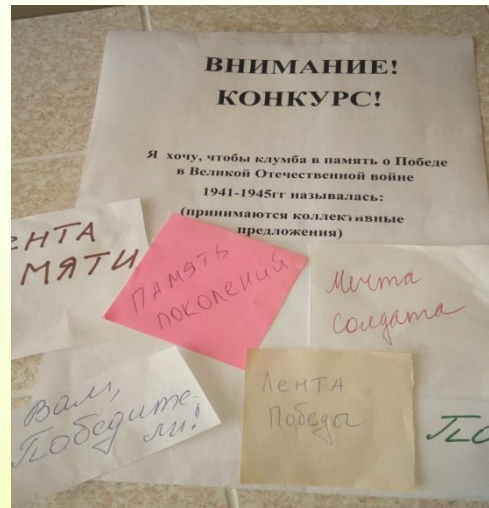 ВНИМАНИЕ!
КОНКУРС!
Я хочу, чтобы клумба в память о Победе
в Великой Отечественной войне
1941-1945гг называлась:
(принимаются коллективные
предложения)
ЕНТА
МЯТИ
ПАМЯТЬ
ПОКОЛЕНИЙ
Мечта
солдата
Вам,
Победите-
ли!
Лента
Победы
ПО